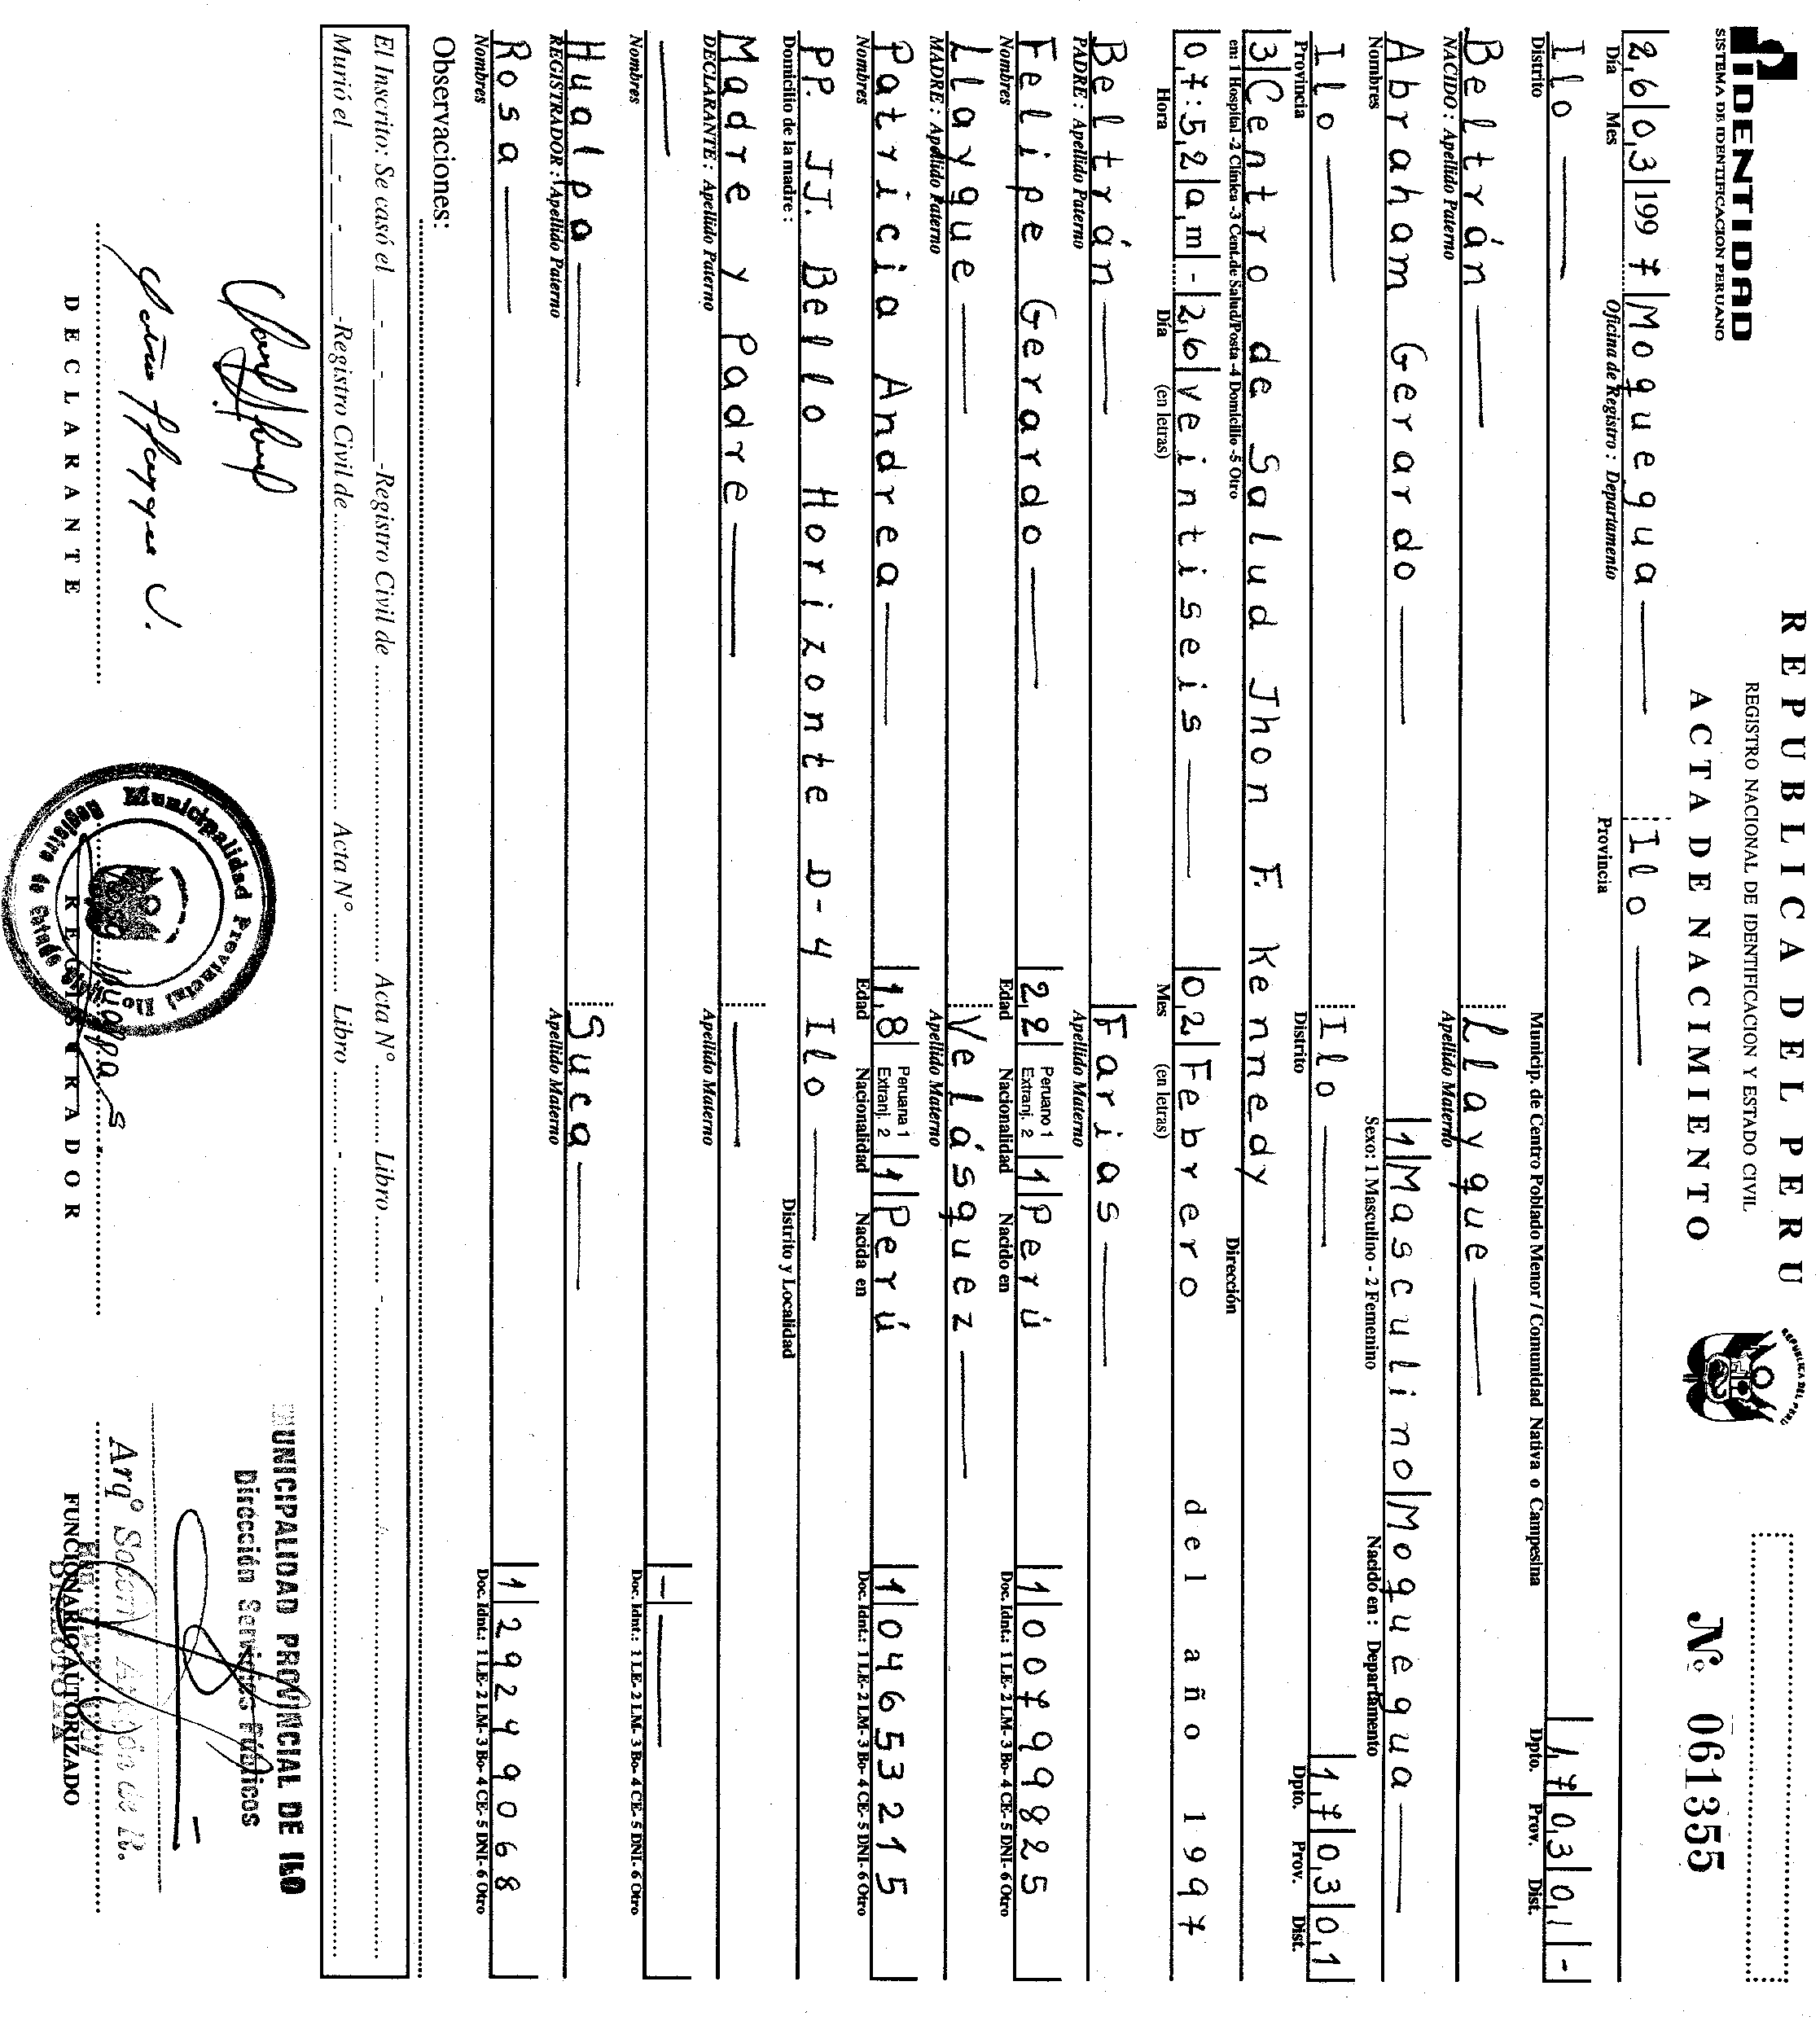 IDENTIDAD
SISTEMA DE IDENTIFICACION PERUANO
REPUBLICA DEL PERU
REGISTRO NACIONAL DE IDENTIFICACION Y ESTADO CIVIL
ACTA DE NACIMIENTO
REPUBLICA DEL PERU
Nº 061355
2,6 0,3 199 7 Moquegua Ilo
Día Mes Oficina de Registro : Departamento Provincia
Ilo 1,7 0,3 0,1 -
Distrito Municip. de Centro Poblado Menor / Comunidad Nativa o Campesina Dpto. Prov. Dist.
Beltrán Llayque
NACIDO : Apellido Paterno Apellido Materno
Abraham Gerardo 1 Masculino Moquegua
Nombres Sexo: 1 Masculino - 2 Femenino Nacido en : Departamento
Ilo Ilo 1,7 0,3 0,1
Provincia Distrito Dpto. Prov. Dist.
3 Centro de Salud Jhon F. Kennedy
en: 1 Hospital -2 Clínica -3 Cent.de Salud/Posta -4 Domicilio -5 Otro Dirección
0,7:5,2 a,m - 2,6 veintiseis 0,2 Febrero del año 1997
Hora Día (en letras) Mes (en letras)
Beltrán Farias
PADRE : Apellido Paterno Apellido Materno
Felipe Gerardo 2,2 Peruano 1 Extranj. 2 1 Perú 1 00799825
Nombres Edad Nacionalidad Nacido en Doc. Idnt.: 1 LE- 2 LM- 3 Bo- 4 CE- 5 DNI- 6 Otro
Llayque Velásquez
MADRE : Apellido Paterno Apellido Materno
Patricia Andrea 1,8 Peruana 1 Extranj. 2 1 Perú 1 04653215
Nombres Edad Nacionalidad Nacida en Doc. Idnt.: 1 LE- 2 LM- 3 Bo- 4 CE- 5 DNI- 6 Otro
PP. JJ. Bello Horizonte D-4 Ilo
Domicilio de la madre : Distrito y Localidad
Madre y Padre
DECLARANTE : Apellido Paterno Apellido Materno
Nombres Doc. Idnt.: 1 LE- 2 LM- 3 Bo- 4 CE- 5 DNI- 6 Otro
Hualpa Suca
REGISTRADOR : Apellido Paterno Apellido Materno
Rosa 1 29249068
Nombres Doc. Idnt.: 1 LE- 2 LM- 3 Bo- 4 CE- 5 DNI- 6 Otro
Observaciones:
El Inscrito: Se casó el ___-___-_____-Registro Civil de .......... Acta Nº .......... Libro .......... -
Murió el ___-___-_____-Registro Civil de .......... Acta Nº .......... Libro .......... -
MUNICIPALIDAD PROVINCIAL DE ILO
Dirección Servicios Públicos
Municipalidad Provincial Ilo
Registro de Estado Civil
Rosa Hualpa S
DECLARANTE
REGISTRADOR
FUNCIONARIO AUTORIZADO
DIRECTORA